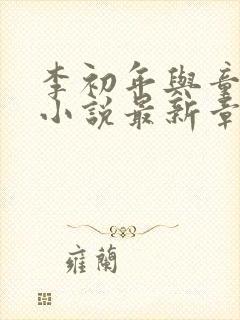 李初年與童
小說最新章
雍蘭